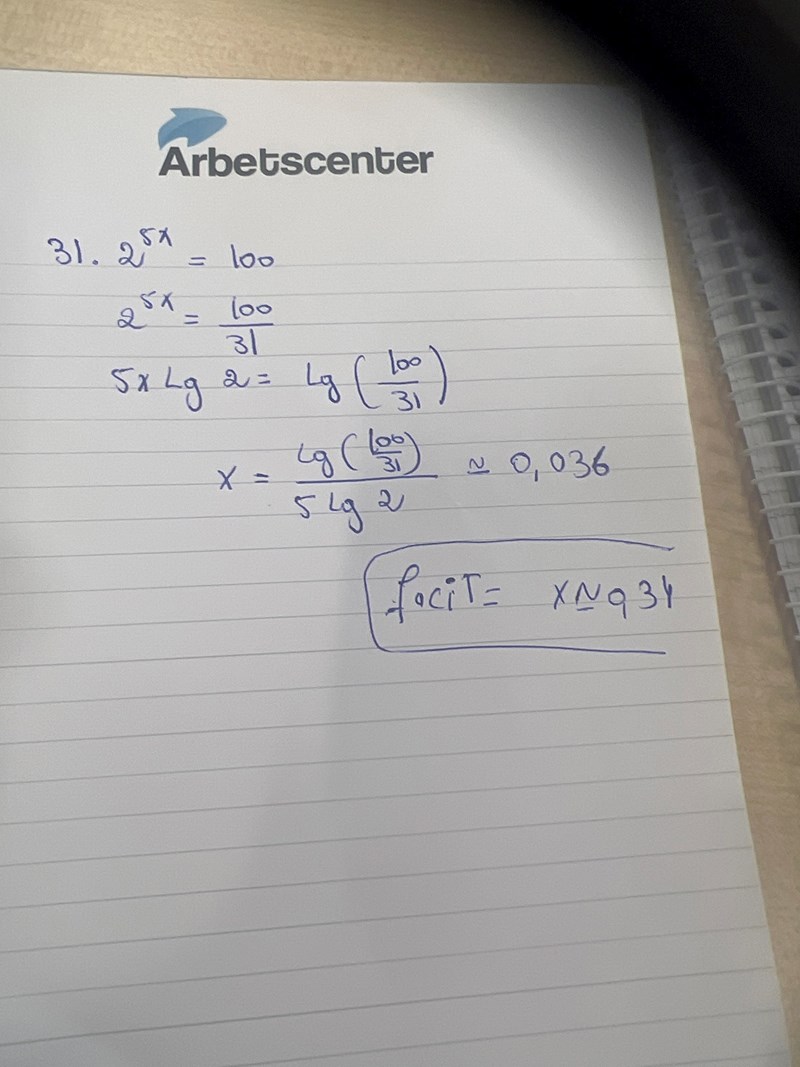 Arbetscenter
31. 2^{5x} = 100
2^{5x} = \frac{100}{31}
5x Lg 2 = Lg (\frac{100}{31})
x = \frac{Lg (\frac{100}{31})}{5 Lg 2} ≃ 0,036
facit = x ≃ 0,34